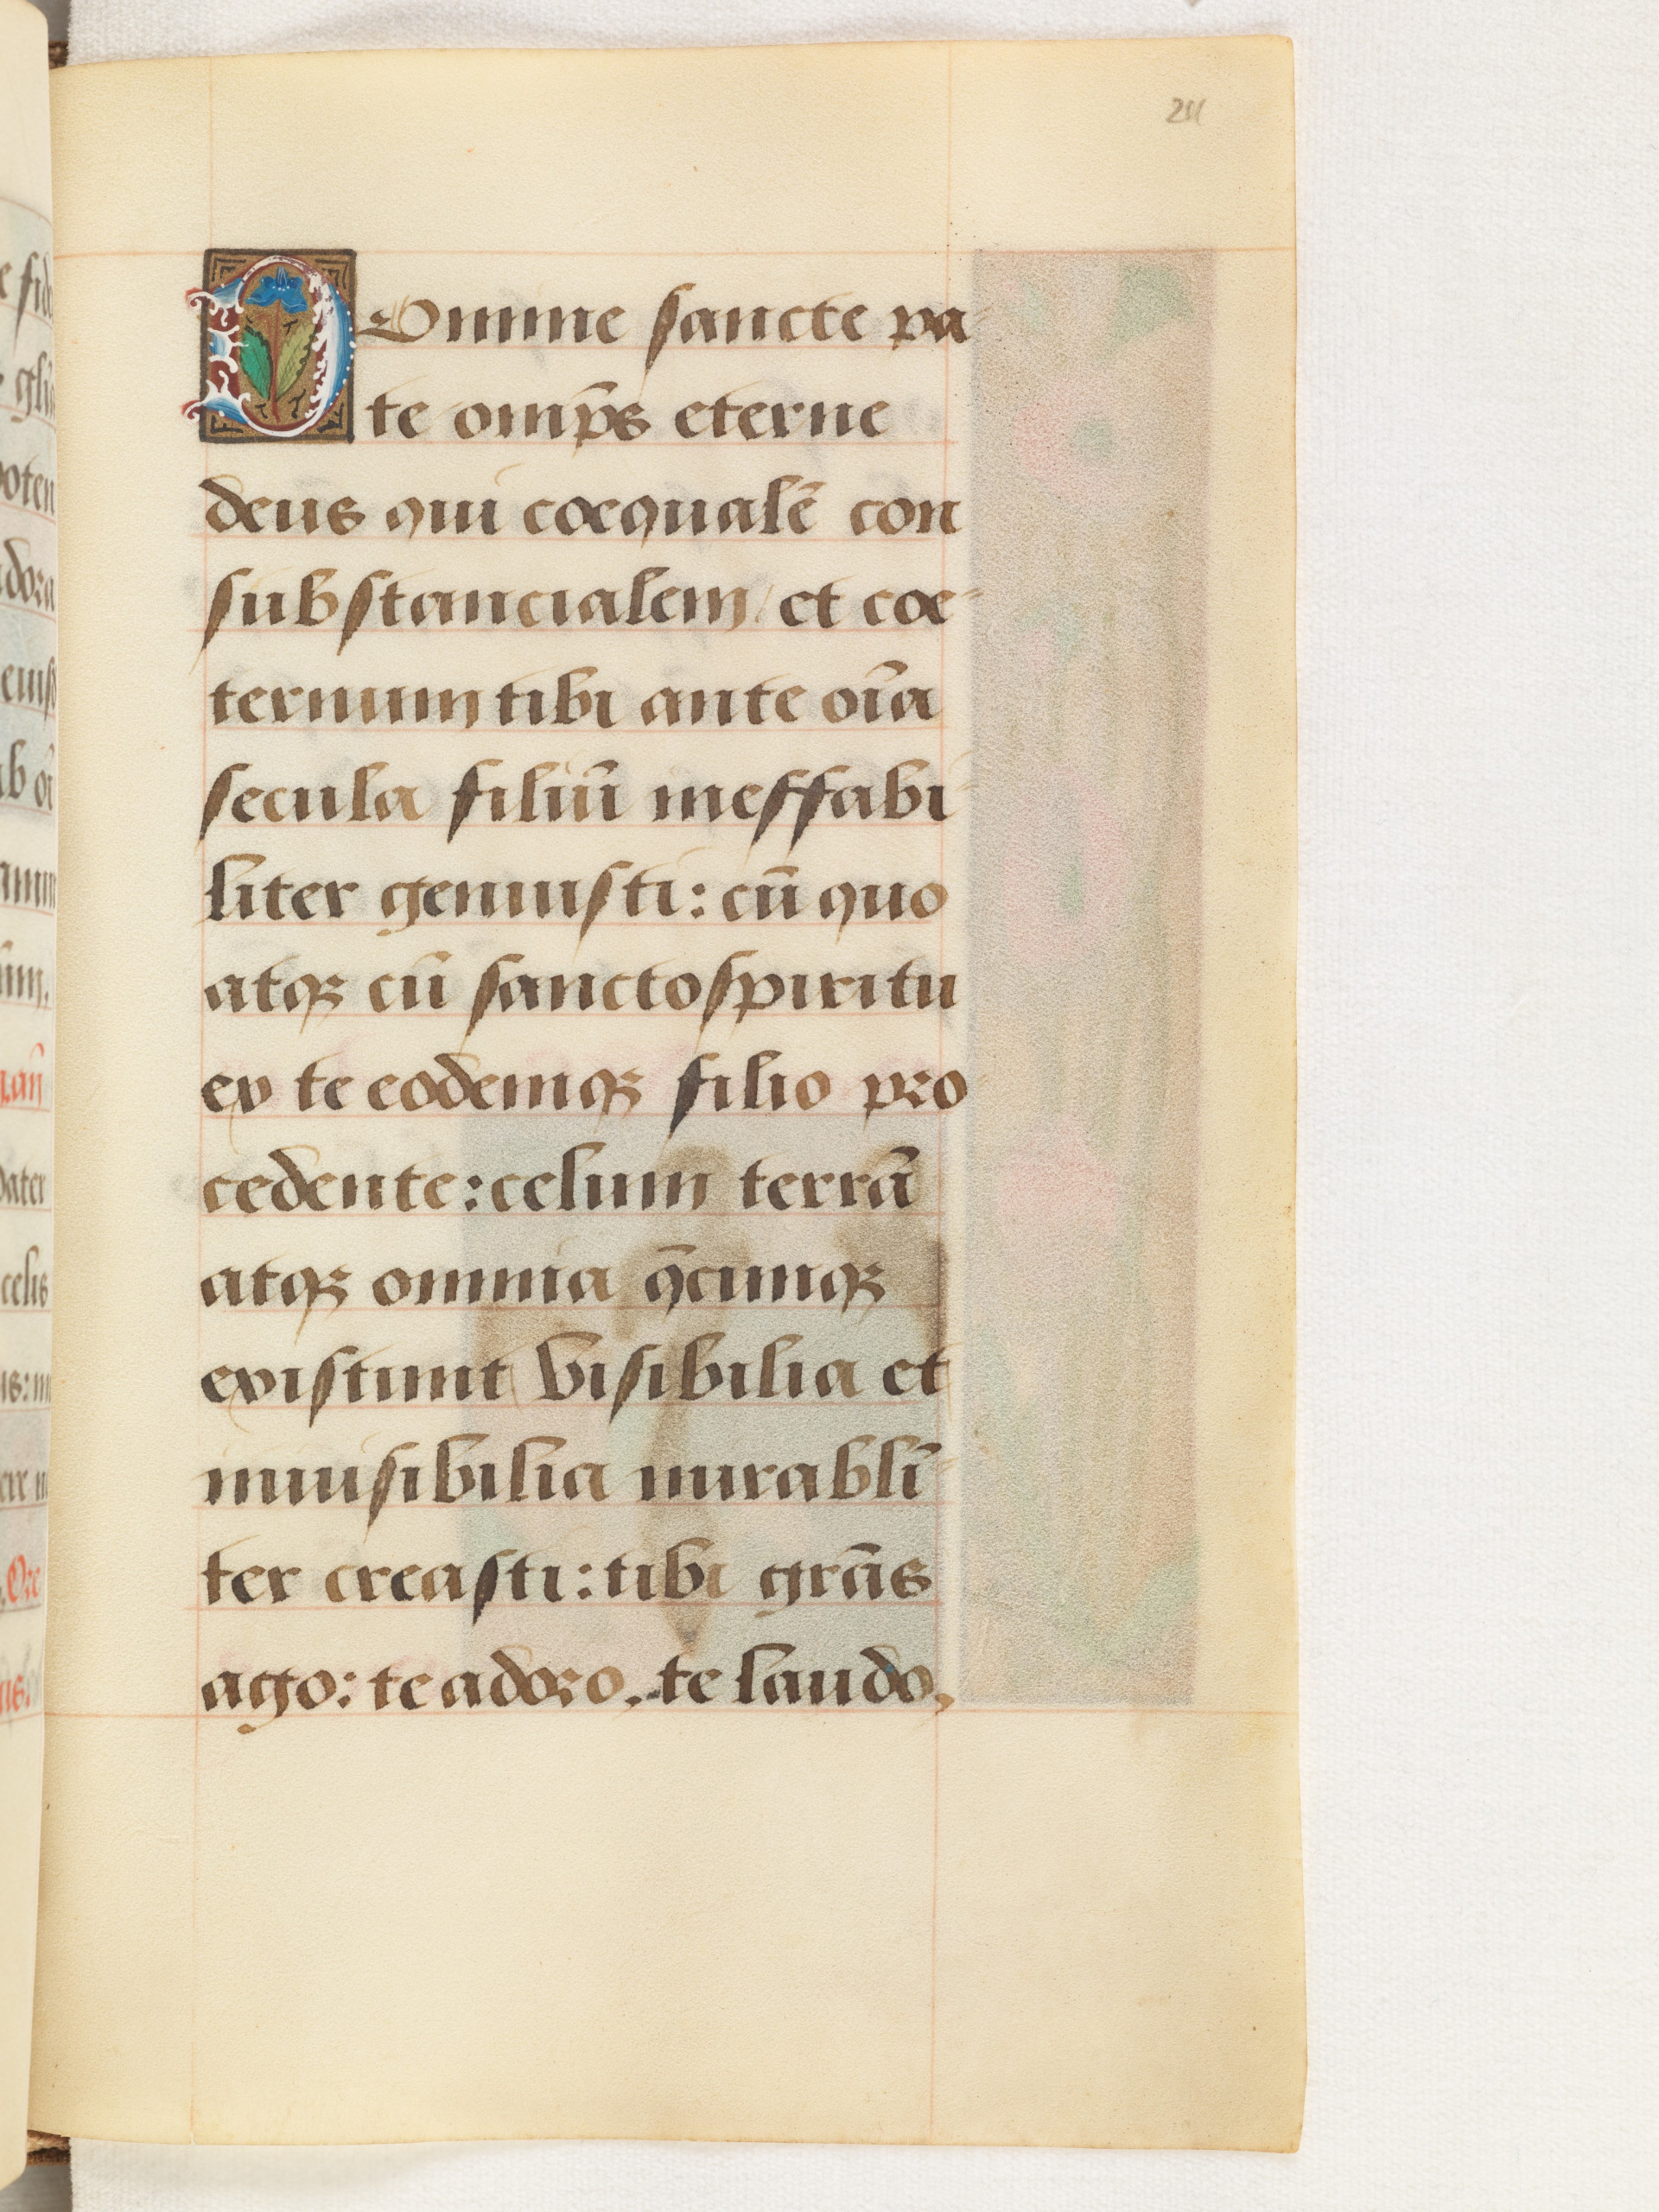 211
DOmine sancte pa
te omp̄s eterne
deus qui coequalē con
substancialem et coe
ternum tibi ante oīa
secula filiū ineffabi
liter genuisti: cū quo
atqꝫ cū sancto spiritu
ex te eodemqꝫ filio pro
cedente: celum terrā
atqꝫ omnia q̄cumqꝫ
existunt visibilia et
inuisibilia mirablī
ter creasti: tibi grās
ago: te adoro, te laudo,